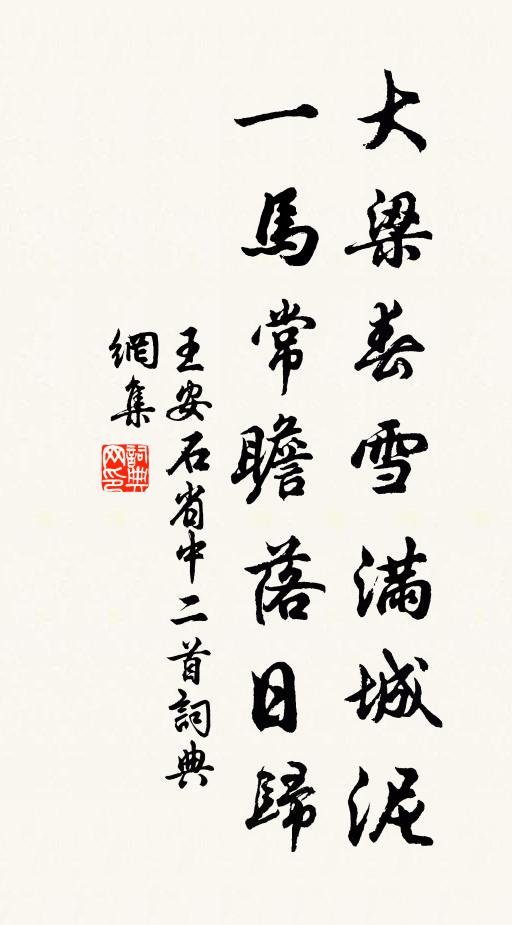 大梁春雪滿城泥
一馬常瞻落日歸
王安石省中二首詞典
網集
詞典
网印